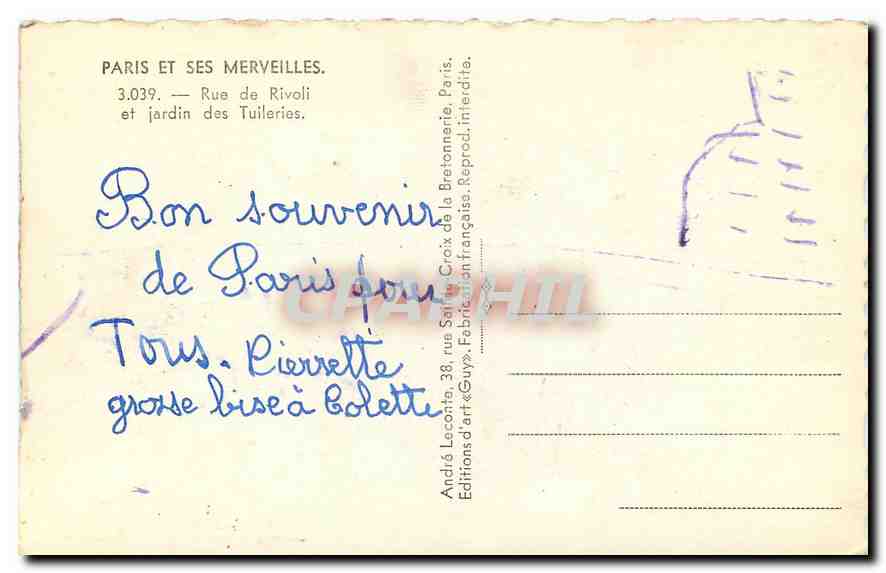 PARIS ET SES MERVEILLES.
3.039. — Rue de Rivoli
et jardin des Tuileries.
Bon souvenir
de Paris pour
Tous. Pierrette
grosse bise à Colette
André Leconte, 38, rue Sainte-Croix de la Bretonnerie, Paris.
Editions d'art «Guy». Fabrication française. Reprod. interdite.
CPAPHIL